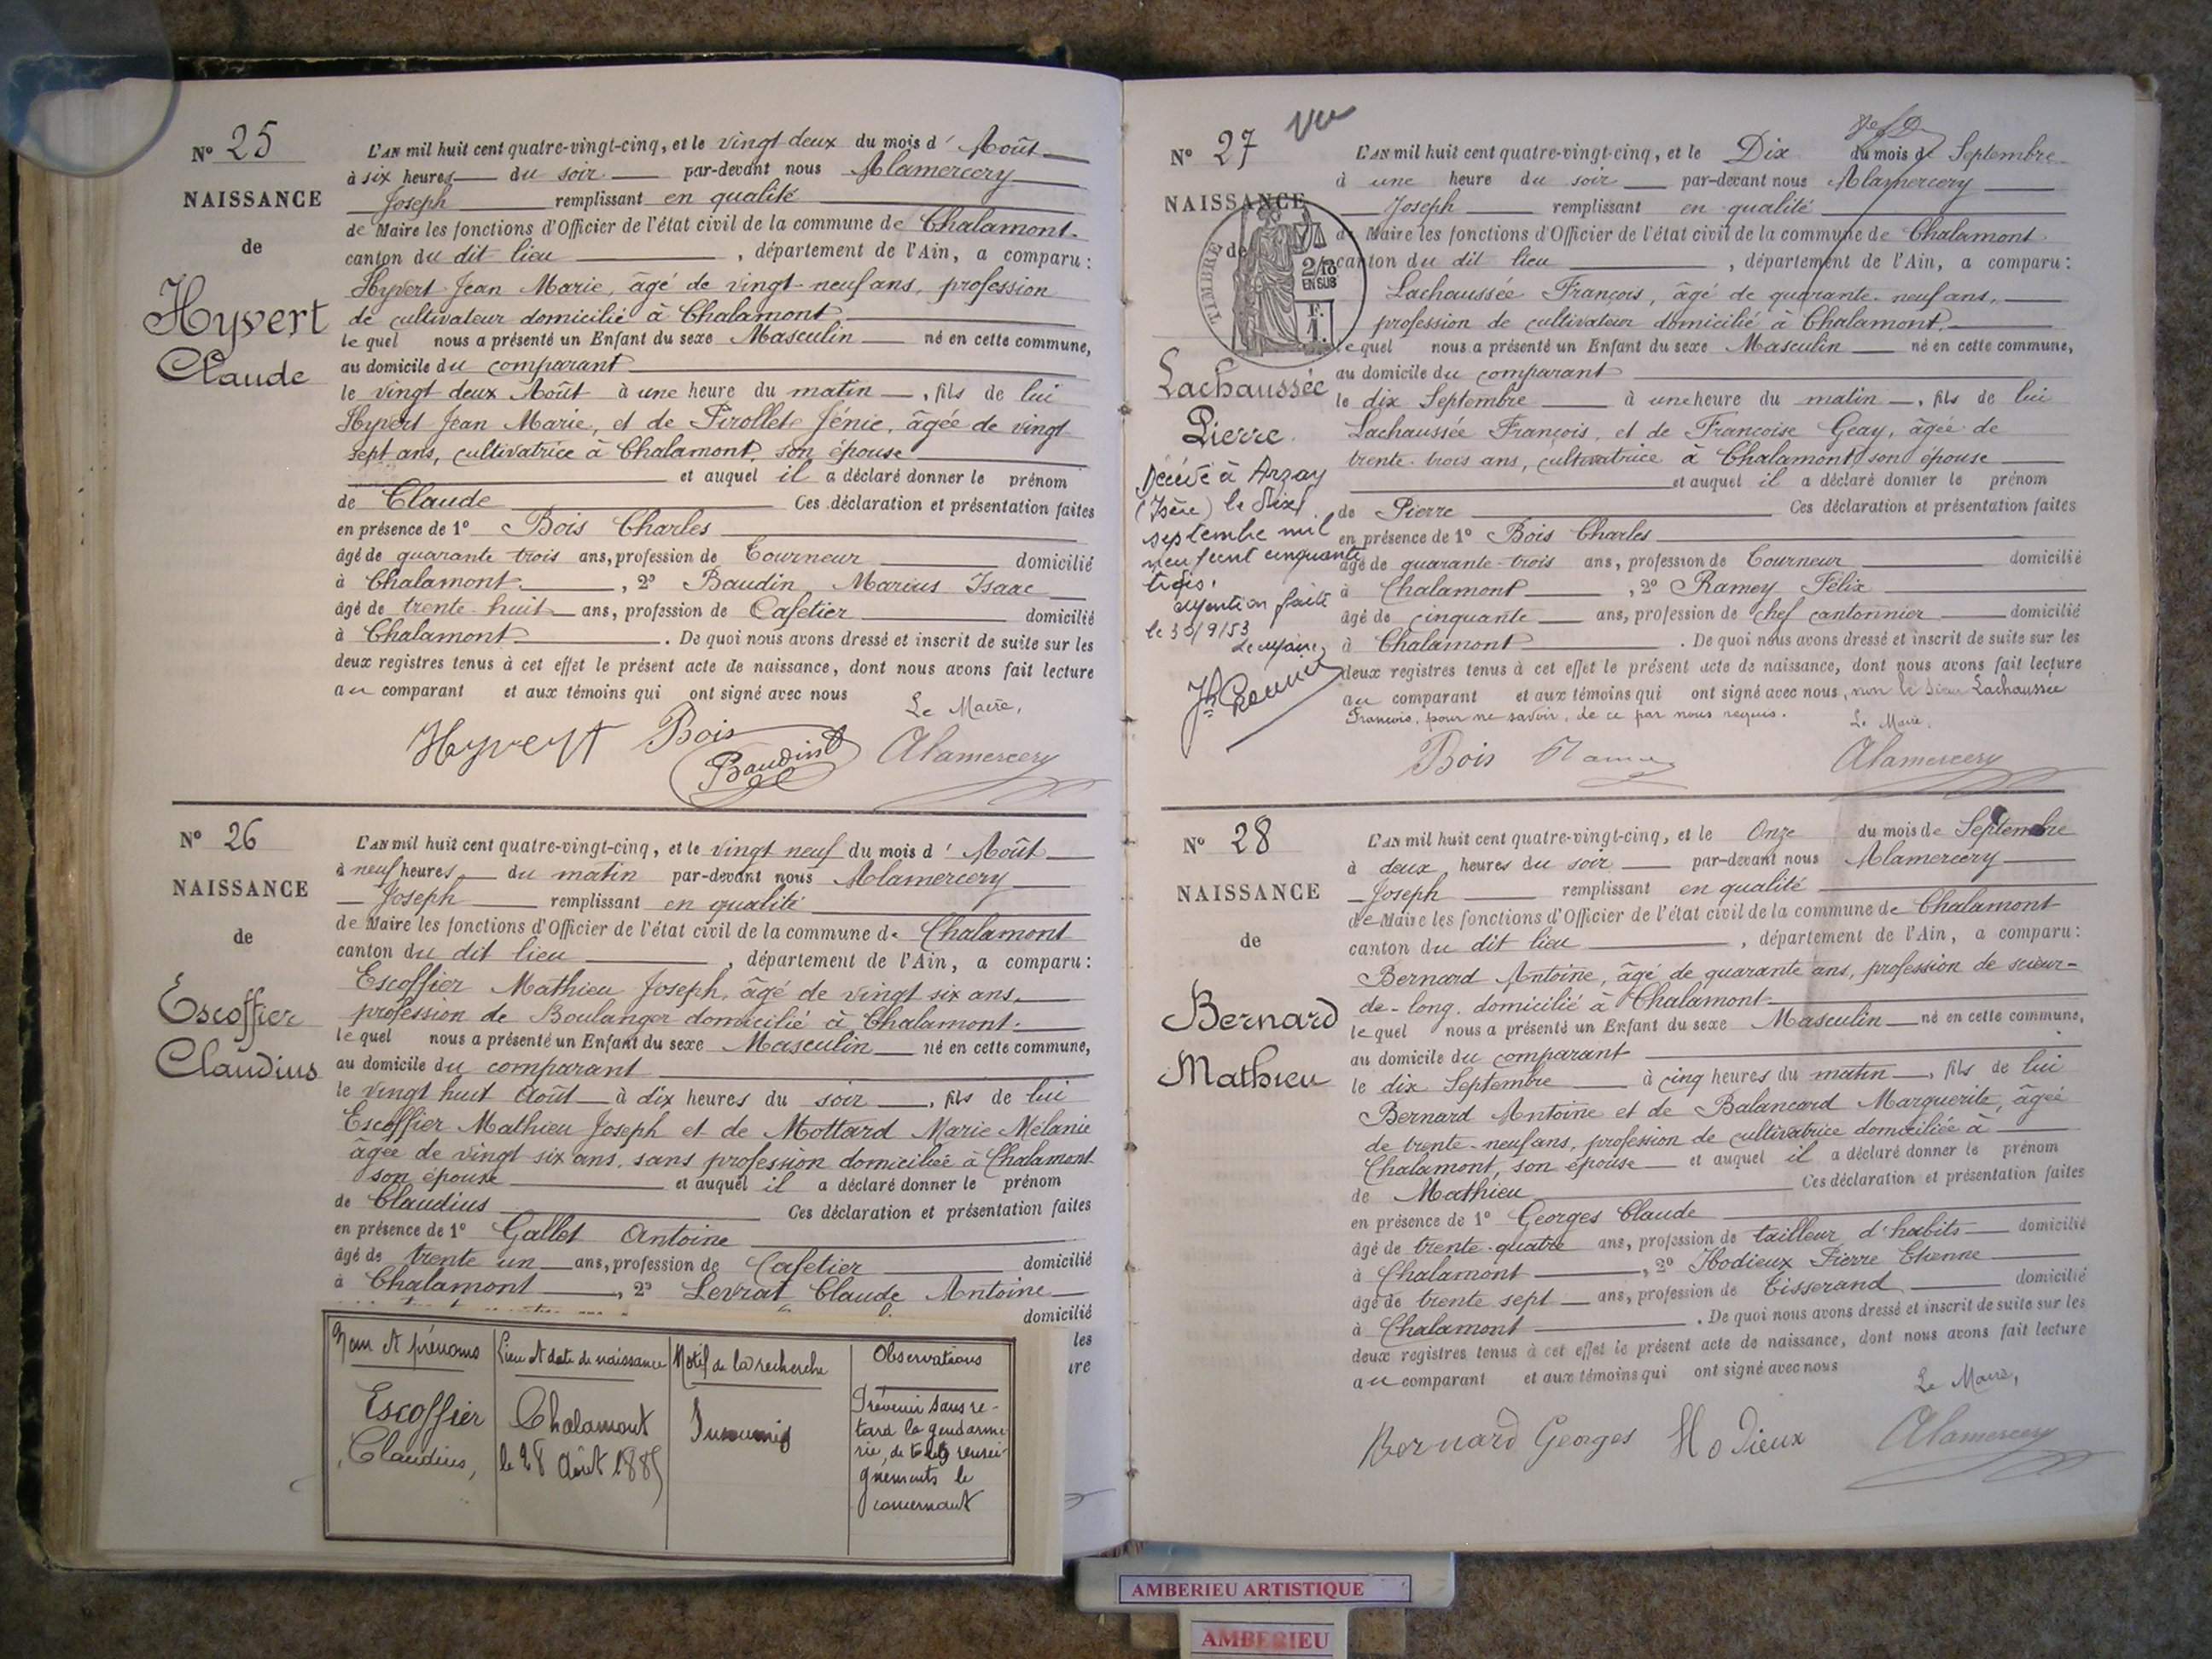 N° 25
NAISSANCE
de
Hyvert
Claude
L'AN mil huit cent quatre-vingt-cinq, et le vingt deux du mois d' Août
à six heures du soir par-devant nous Alamercery
Joseph remplissant en qualité
de Maire les fonctions d'Officier de l'état civil de la commune de Chalamont
canton du dit lieu, département de l'Ain, a comparu :
Hyvert Jean Marie, âgé de vingt-neuf ans, profession
de cultivateur domicilié à Chalamont
le quel nous a présenté un Enfant du sexe Masculin né en cette commune,
au domicile du comparant
le vingt deux Août à une heure du matin, fils de lui
Hyvert Jean Marie, et de Pirollet Jénie, âgée de vingt
sept ans, cultivatrice à Chalamont, son épouse
et auquel il a déclaré donner le prénom
de Claude Ces déclaration et présentation faites
en présence de 1° Bois Charles
âgé de quarante trois ans, profession de Tourneur domicilié
à Chalamont, 2° Baudin Marius Isaac
âgé de trente-huit ans, profession de Cafetier domicilié
à Chalamont. De quoi nous avons dressé et inscrit de suite sur les
deux registres tenus à cet effet le présent acte de naissance, dont nous avons fait lecture
au comparant et aux témoins qui ont signé avec nous
Le Maire,
Hyvert Bois Baudin Alamercery
N° 26
NAISSANCE
de
Escoffier
Claudius
L'AN mil huit cent quatre-vingt-cinq, et le vingt neuf du mois d' Août
à neuf heures du matin par-devant nous Alamercery
Joseph remplissant en qualité
de Maire les fonctions d'Officier de l'état civil de la commune de Chalamont
canton du dit lieu, département de l'Ain, a comparu :
Escoffier Mathieu Joseph, âgé de vingt six ans,
profession de Boulanger domicilié à Chalamont.
le quel nous a présenté un Enfant du sexe Masculin né en cette commune,
au domicile du comparant
le vingt huit Août à dix heures du soir, fils de lui
Escoffier Mathieu Joseph et de Mottard Marie Mélanie
âgée de vingt six ans, sans profession domiciliée à Chalamont
son épouse et auquel il a déclaré donner le prénom
de Claudius Ces déclaration et présentation faites
en présence de 1° Gallet Antoine
âgé de trente un ans, profession de Cafetier domicilié
à Chalamont, 2° Levrat Claude Antoine
domicilié
les
ure
Nom et prénoms | Lieu et date de naissance | Motif de la recherche | Observations
Escoffier
Claudius,
Chalamont
le 28 Août 1885
Insoumis
Prévenir sans re-
tard la gendarme
rie, de tous rensei-
gnements le
concernant
N° 27 Vu
NAISSANCE
de
TIMBRE
2/10
EN SUS
F.
1.
Lachaussée
Pierre
Décédé à Arzay
(Isère) le dix
septembre mil
neuf cent cinquante
trois.
Mention faite
le 30/9/53
Le Maire,
L'AN mil huit cent quatre-vingt-cinq, et le Dix du mois de Septembre
à une heure du soir par-devant nous Alamercery
Joseph remplissant en qualité
de Maire les fonctions d'Officier de l'état civil de la commune de Chalamont
canton du dit lieu, département de l'Ain, a comparu :
Lachaussée François, âgé de quarante-neuf ans,
profession de cultivateur domicilié à Chalamont.
lequel nous a présenté un Enfant du sexe Masculin né en cette commune,
au domicile du comparant
le dix Septembre à une heure du matin, fils de lui
Lachaussée François, et de Françoise Geay, âgée de
trente-trois ans, cultivatrice à Chalamont, son épouse
et auquel il a déclaré donner le prénom
de Pierre Ces déclaration et présentation faites
en présence de 1° Bois Charles
âgé de quarante-trois ans, profession de Tourneur domicilié
à Chalamont, 2° Ramey Félix
âgé de cinquante ans, profession de chef cantonnier domicilié
à Chalamont. De quoi nous avons dressé et inscrit de suite sur les
deux registres tenus à cet effet le présent acte de naissance, dont nous avons fait lecture
au comparant et aux témoins qui ont signé avec nous, non le sieur Lachaussée
François, pour ne savoir, de ce par nous requis.
Le Maire,
Bois Ramey Alamercery
N° 28
NAISSANCE
de
Bernard
Mathieu
L'AN mil huit cent quatre-vingt-cinq, et le Onze du mois de Septembre
à deux heures du soir par-devant nous Alamercery
Joseph remplissant en qualité
de Maire les fonctions d'Officier de l'état civil de la commune de Chalamont
canton du dit lieu, département de l'Ain, a comparu :
Bernard Antoine, âgé de quarante ans, profession de scieur-
de-long, domicilié à Chalamont
le quel nous a présenté un Enfant du sexe Masculin né en cette commune,
au domicile du comparant
le dix Septembre à cinq heures du matin, fils de lui
Bernard Antoine et de Balancard Marguerite, âgée
de trente-neuf ans, profession de cultivatrice domiciliée à
Chalamont, son épouse et auquel il a déclaré donner le prénom
de Mathieu Ces déclaration et présentation faites
en présence de 1° Georges Claude
âgé de trente-quatre ans, profession de tailleur d'habits domicilié
à Chalamont, 2° Hodieux Pierre Etienne
âgé de trente sept ans, profession de Tisserand domicilié
à Chalamont. De quoi nous avons dressé et inscrit de suite sur les
deux registres tenus à cet effet le présent acte de naissance, dont nous avons fait lecture
au comparant et aux témoins qui ont signé avec nous
Le Maire,
Bernard Georges Hodieux Alamercery
AMBERIEU ARTISTIQUE
AMBERIEU